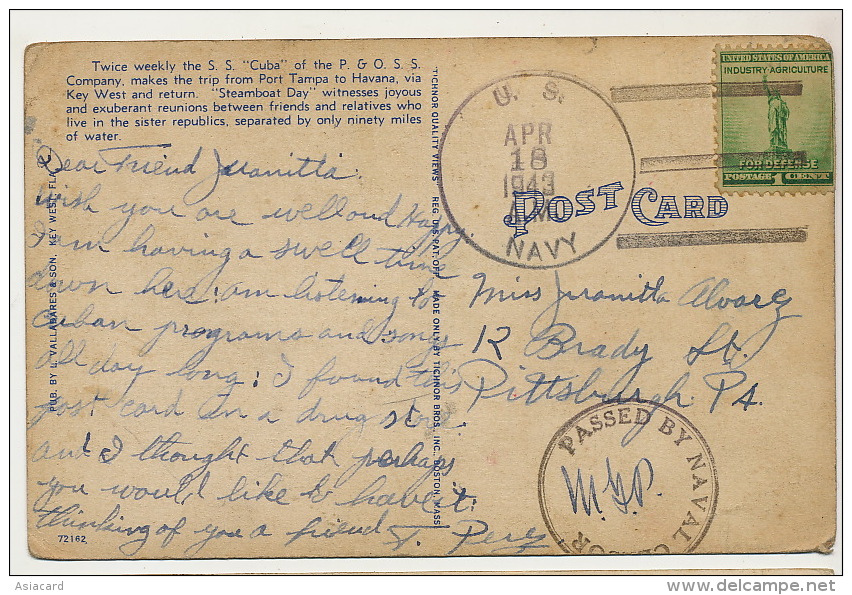 Twice weekly the S. S. "Cuba" of the P. & O. S. S.
Company, makes the trip from Port Tampa to Havana, via
Key West and return. "Steamboat Day" witnesses joyous
and exuberant reunions between friends and relatives who
live in the sister republics, separated by only ninety miles
of water.
Dear Friend Juanitta.
Wish you are well and Happy.
I am having a swell time
down here: am listening to
Cuban programs and songs
all day long: I found this
post card in a drug store.
and I thought that perhaps
you would like to have it.
thinking of you a friend
T. Perez
72162
PUB. BY L. VALLADARES & SON, KEY WEST, FLA.
TICHNOR QUALITY VIEWS REG. U.S. PAT. OFF. MADE ONLY BY TICHNOR BROS., INC., BOSTON, MASS.
U. S.
APR
18
1943
A.M.
NAVY
POST CARD
UNITED STATES OF AMERICA
INDUSTRY AGRICULTURE
FOR DEFENSE
POSTAGE 1 CENT
Miss Juanitta Alvarez
12 Brady St.
Pittsburgh Pa.
PASSED BY NAVAL CENSOR
Asiacard
delcampe.net